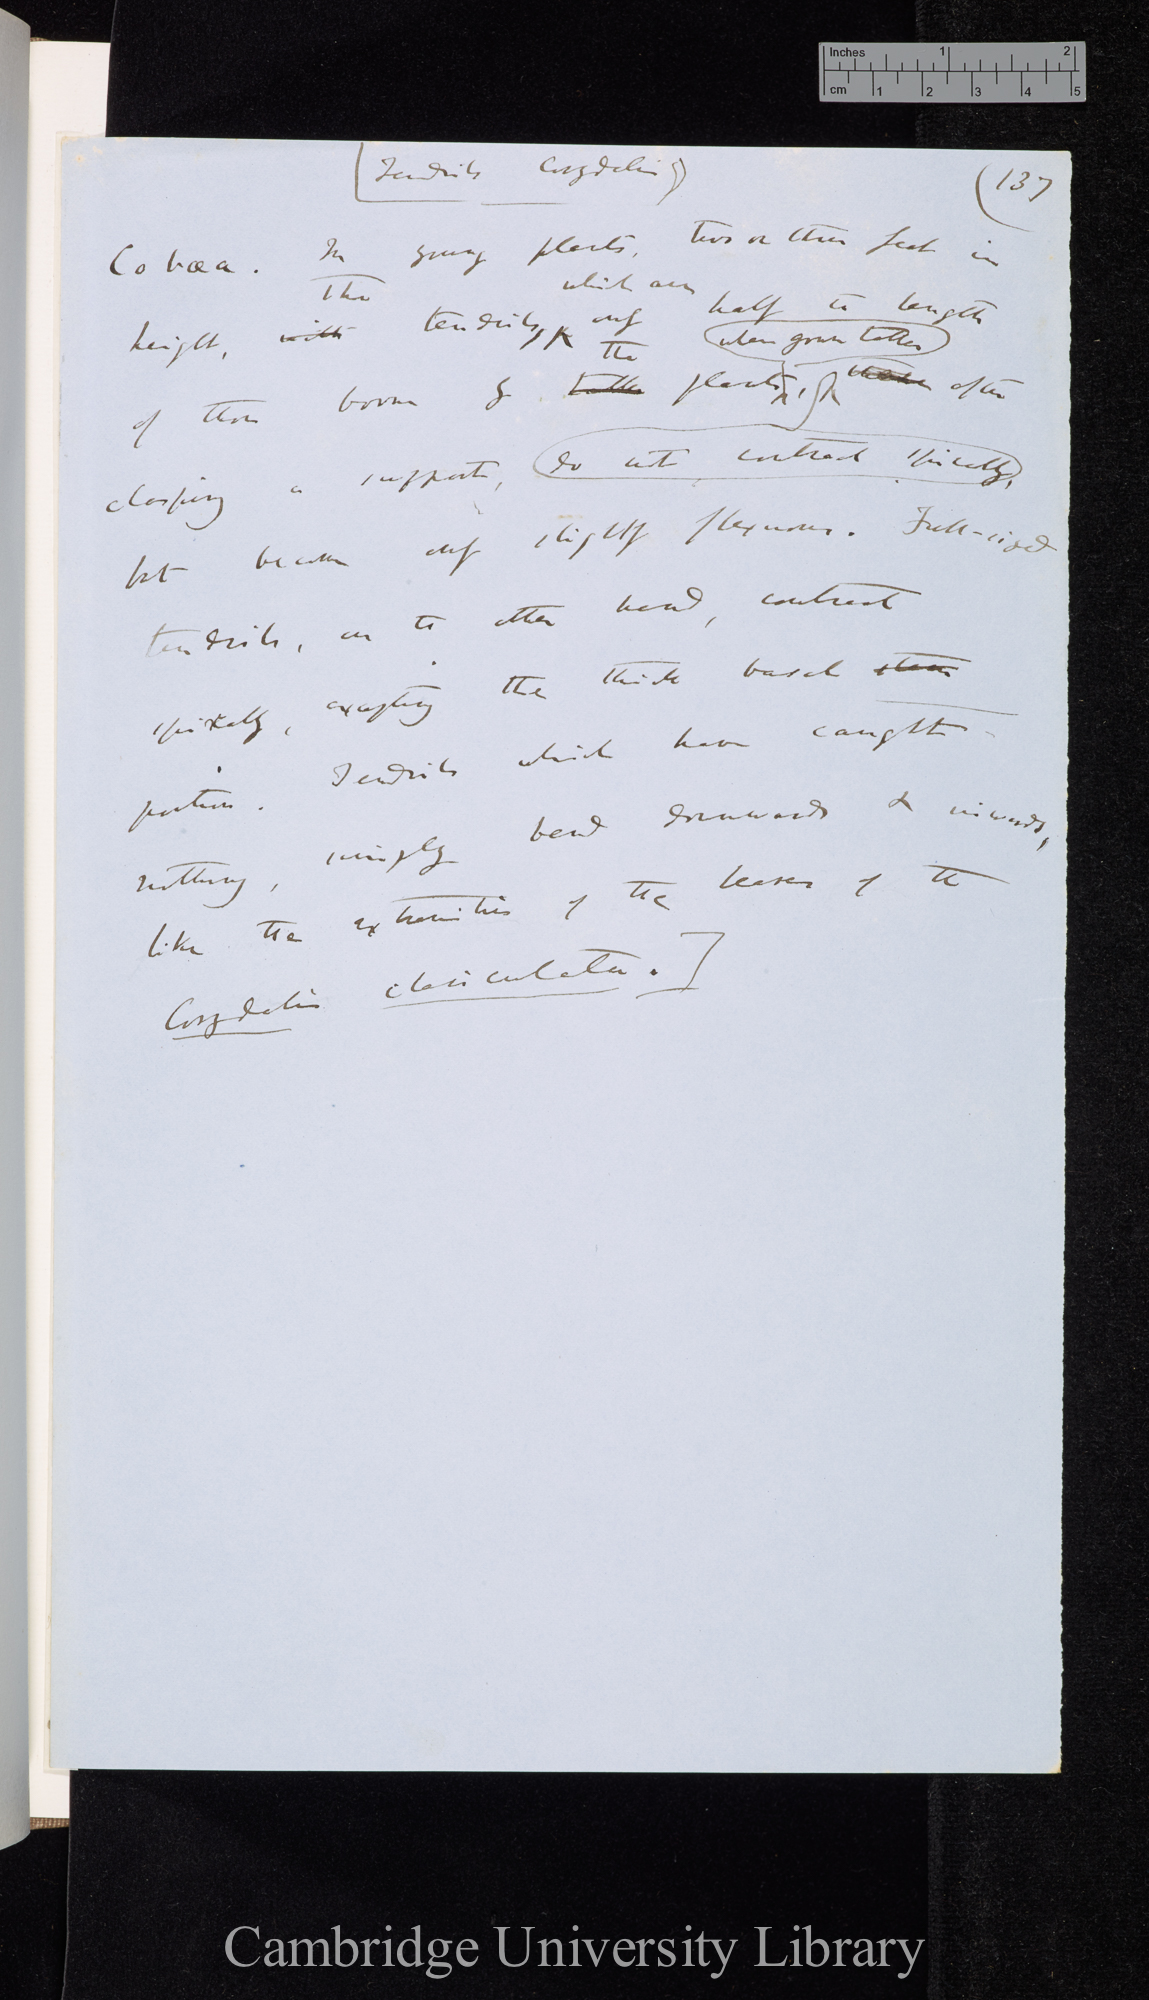 (Tendrils Corydalis)
(137
Cobæa. In young plants, two or three feet in
the which are
height, with tendrils, only half the length
the when grown taller
of those borne by taller plants, after
clasping a support, do not contract spirally,
but become only slightly flexuous. Full-sized
tendrils, on the other hand, contract
spirally, excepting the thick basal
portion. Tendrils which have caught
nothing, simply bend downwards & inwards,
like the extremities of the leaves of the
Corydalis claviculata.]
Inches 1 2
cm 1 2 3 4 5
Cambridge University Library